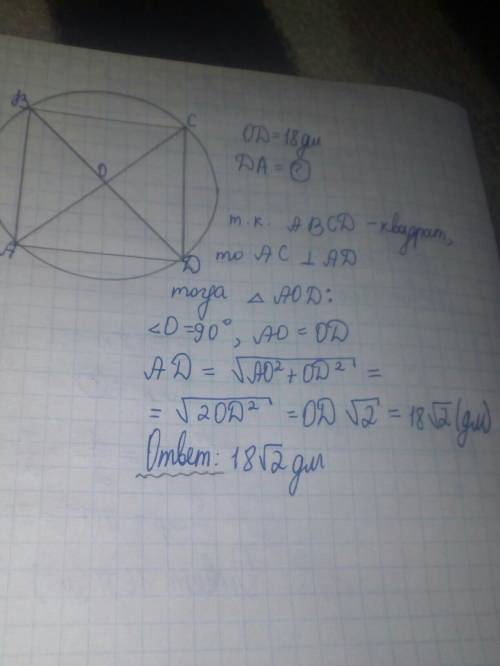 B
C
O
A
D
OD = 18 дм
DA = ?
т.к. ABCD - квадрат,
то AC ⊥ AD
тогда △ AOD:
∠O = 90°, AO = OD
AD = √AO² + OD² =
= √2OD² = OD √2 = 18√2 (дм)
Ответ: 18√2 дм